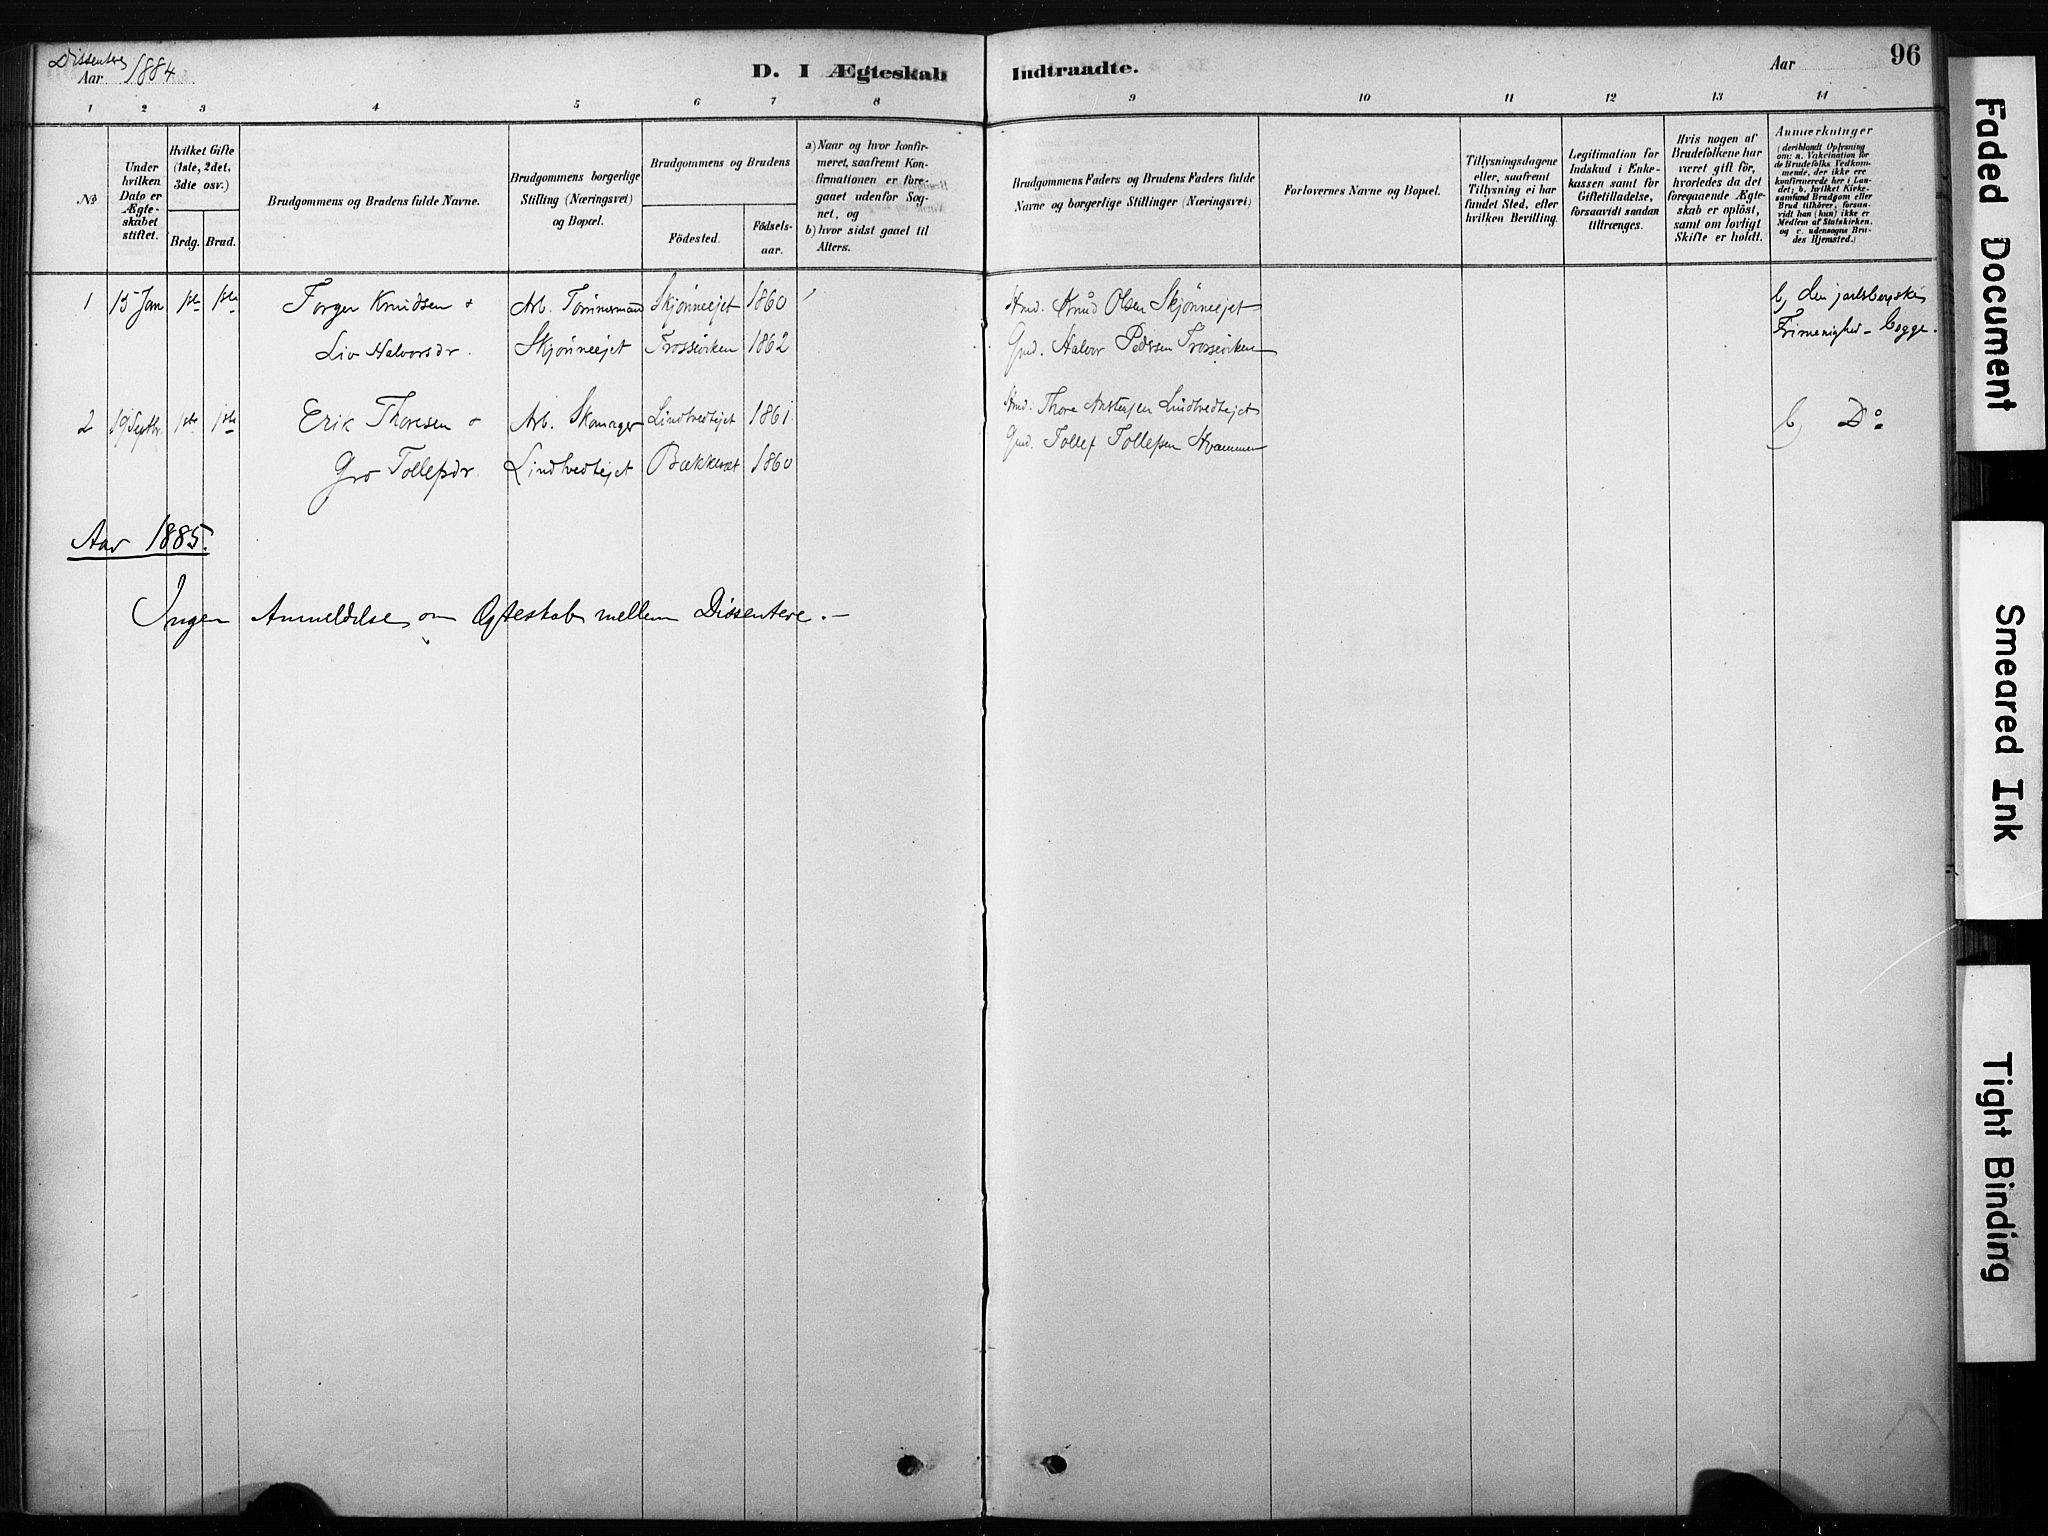 Dissentere
Aar 1884
D. I Ægteskab
Indtraadte.
Aar
96
1 2 3 4 5 6 7 8
9 10 11 12 13 14
No
Under hvilken Dato er Ægteskabet stiftet.
Hvilket Gifte (1ste, 2det, 3die osv.)
Brdg. Brud.
Brudgommens og Brudens fulde Navne.
Brudgommens borgerlige Stilling (Næringsvei) og Bopæl.
Brudgommens og Brudens
Födested.
Födselsaar.
a) Naar og hvor konfirmeret, saafremt Konfirmationen er foregaaet udenfor Sognet, og
b) hvor sidst gaaet til Alters.
Brudgommens Faders og Brudens Faders fulde Navne og borgerlige Stillinger (Næringsvei)
Forlovernes Navne og Bopæl.
Tillysningsdagene eller, saafremt Tillysning ei har fundet Sted, efter hvilken Bevilling.
Legitimation for Indskud i Enkekassen samt for Giftetilladelse, forsaavidt saadan tiltrænges.
Hvis nogen af Brudefolkene har været gift för, hvorledes da det foregaaende Ægteskab er oplöst, samt om lovligt Skifte er holdt.
Anmærkninger
(deriblandt Oplysning om: a. Vakcination för de Brudefolks Vedkommende, der ikke ere konfirmerede her i Landet; b. hvilket Kirkesamfund Brudgom eller Brud tilhörer, forsaavidt han (hun) ikke er Medlem af Statskirken, og c. udensogns Brudes Hjemsted.)
1 15 Jan 1ste 1ste Torger Knudsen + Arb. Tømmermand Skjønneejet 1860 Hmd. Knud Olsen Skjønneejet b, Den jarlsbergske
Liv Halvorsdr. Skjønneejet Trosseviken 1862 Gmd. Halvor Pedersen Trosseviken Frimenighed - begge.
2 19 Septbr. 1ste 1ste Erik Thoresen + Arb. Skomager Lindtvedtejet 1861 Hmd. Thore Lindtvedtejet b, Do
Gro Tollefsdr. Lindtvedtejet 1860 Gmd. Tollef Tollefsen Hvammen
Aar 1885.
Ingen Anmeldelse om Ægteskab mellem Dissentere. -
Faded Document
Smeared Ink
Tight Binding